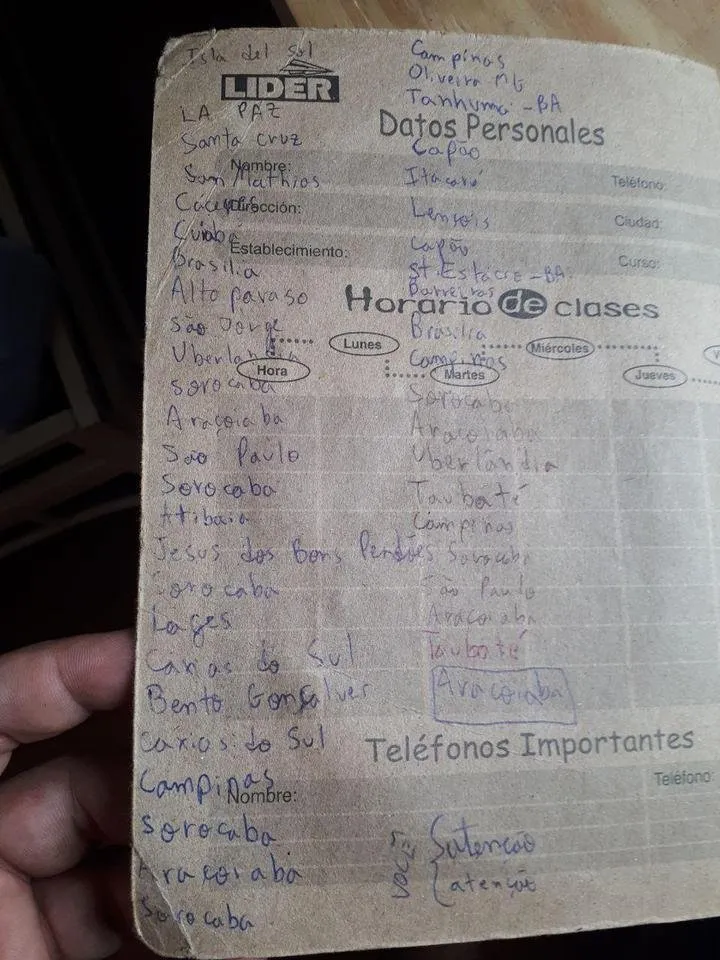 Isla del Sol
LIDER
LA PAZ
Santa cruz
San Mathios
Caceres
Cuiabá
Brasilia
Alto paraso
são Jorge
Uberlandia
sorocaba
Araçoiaba
São Paulo
Sorocaba
Atibaia
Jesus dos Bons Perdões
Sorocaba
Lages
Caxias do Sul
Bento Gonçalves
caxias do Sul
Campinas
Sorocaba
Araçoiaba
Sorocaba
Campinas
Oliveira MG
Tanhumã -BA
Datos Personales
Capão
Nombre:
Teléfono:
Itacaré
Dirección:
Lensois
Ciudad:
Establecimiento:
capão
Curso:
St. Estacre -BA
Barreiras
Horario de clases
Brasilia
Lunes
Miércoles
Campinas
Hora
Martes
Jueves
V
Sorocaba
Aracoiaba
Uberlândia
Taubaté
Campinas
Sorocaba
São Paulo
Aracoiaba
Taubaté
Aracoiaba
Teléfonos Importantes
Nombre:
Teléfono:
Satencão
atenção